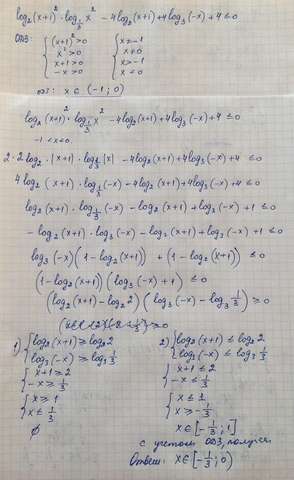 log₂(x+1)² · log_{1/3} x² − 4log₂(x+1) + 4log₃(−x) + 4 ≤ 0
ОДЗ: { (x+1)² > 0 { x ≠ −1
x² > 0 x ≠ 0
x+1 > 0 x > −1
−x > 0 x < 0
ОДЗ: x ∈ (−1; 0)
log₂(x+1)² · log_{1/3} x² − 4log₂(x+1) + 4log₃(−x) + 4 ≤ 0
−1 < x < 0
2·2 log₂·|x+1|·log_{1/3}|x| − 4log₂(x+1) + 4log₃(−x) + 4 ≤ 0
4log₂(x+1)·log_{1/3}(−x) − 4log₂(x+1) + 4log₃(−x) + 4 ≤ 0
log₂(x+1)·log_{1/3}(−x) − log₂(x+1) + log₃(−x) + 1 ≤ 0
−log₂(x+1)·log₃(−x) − log₂(x+1) + log₃(−x) + 1 ≤ 0
log₃(−x)(1−log₂(x+1)) + (1−log₂(x+1)) ≤ 0
(1−log₂(x+1))(log₃(−x)+1) ≤ 0
(log₂(x+1)−log₂2)(log₃(−x)−log₃ 1/3) ≥ 0
1) { log₂(x+1) ≥ log₂2 2) { log₂(x+1) ≤ log₂2
log₃(−x) ≥ log₃ 1/3 log₃(−x) ≤ log₃ 1/3
{ x+1 ≥ 2 { x+1 ≤ 2
−x ≥ 1/3 −x ≤ 1/3
{ x ≥ 1 { x ≤ 1
x ≤ 1/3 x ≥ −1/3
∅ x ∈ [−1/3; 1]
с учетом ОДЗ, получ
Ответ: x ∈ [−1/3; 0)